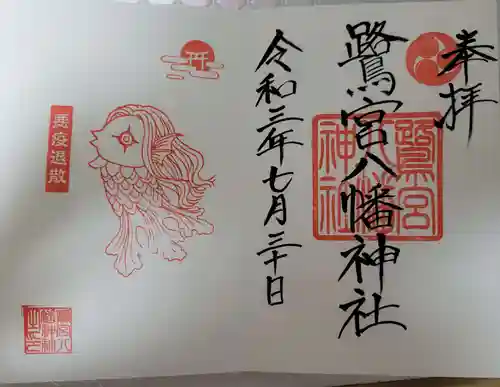 奉拝
鷺宮八幡神社
令和三年七月三十日
悪疫退散
鷺宮八幡神社